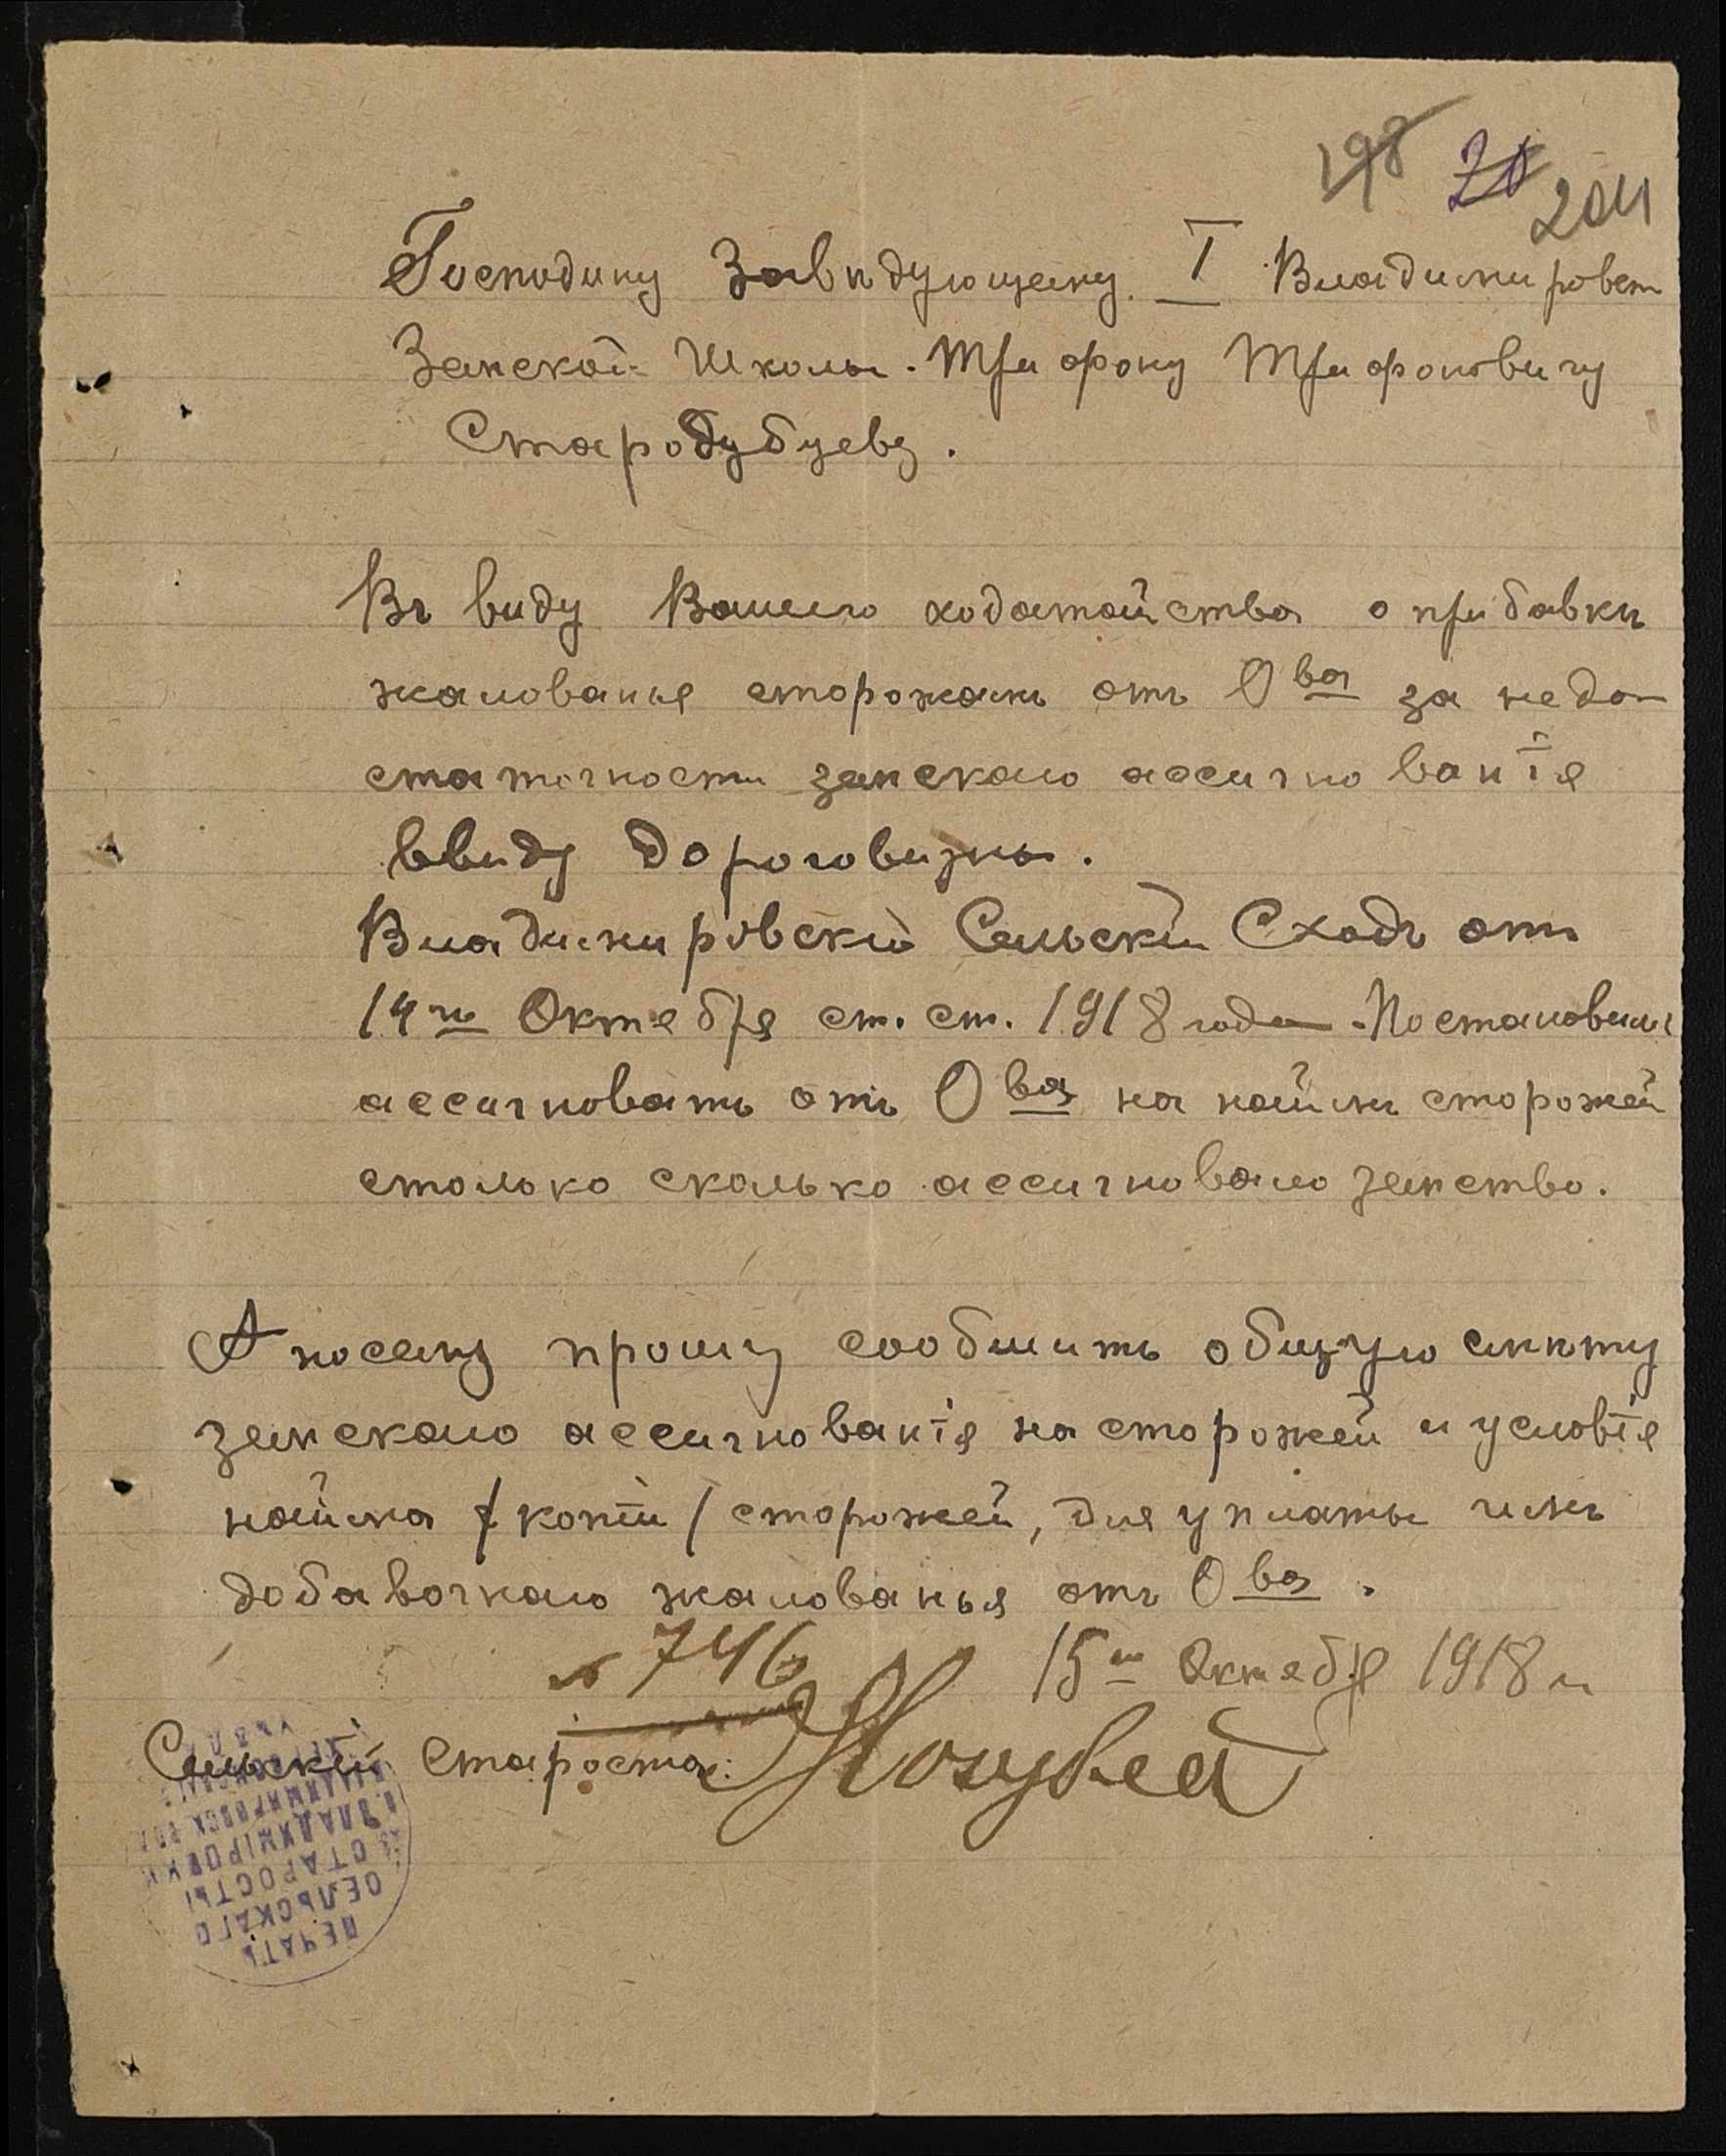 198 20 204
Господину Завѣдующему I Владимировск
Земской Школы. Трифону Трифоновичу
Стародубцеву.
Въ виду Вашего ходатайства о прибавкѣ
жалованья сторожамъ отъ О ва за недо-
статочности земскаго ассигнованія
ввиду дороговизны.
Владимировскій Сельскій Сходъ отъ
14 го Октября ст. ст. 1918 года. Постановилъ
ассигновать отъ О ва на наймъ сторожей
столько сколько ассигновало земство.
А посему прошу сообщить общую смѣту
земскаго ассигнованія на сторожей и условіе
найма /копіи/ сторожей, для уплаты имъ
добавочнаго жалованья отъ О ва.
№ 746 15 го Октября 1918 г.
Сельскій Староста:
ПЕЧАТЬ
СЕЛЬСКАГО
СТАРОСТЫ
ВЛАДИМІРОВКИ